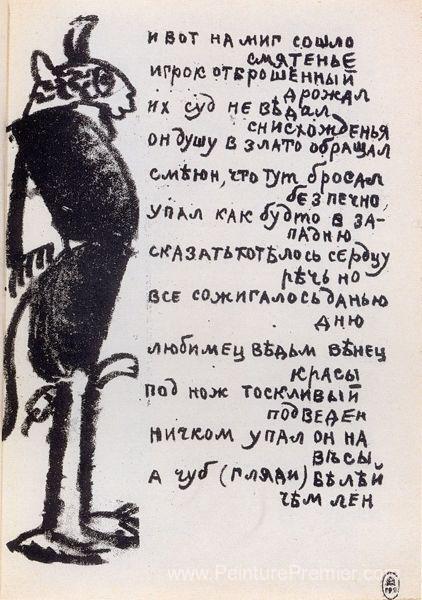 и вот на миг сошло
смятенье
игрок отброшенный
дрожал
их суд не вѣдал
снисхожденья
он душу в злато обращал
смѣюн, что тут бросал
безпечно,
упал как будто в за-
падню
сказать хотѣлось сердцу
рѣчь но
все сожигалось данью
дню
любимец вѣдьм вѣнец
красы
под нож тоскливый
подведен
ничком упал он на
вѣсы,
а чуб (гляди) бѣлѣй
чѣм лен
www.PeinturePremier.com